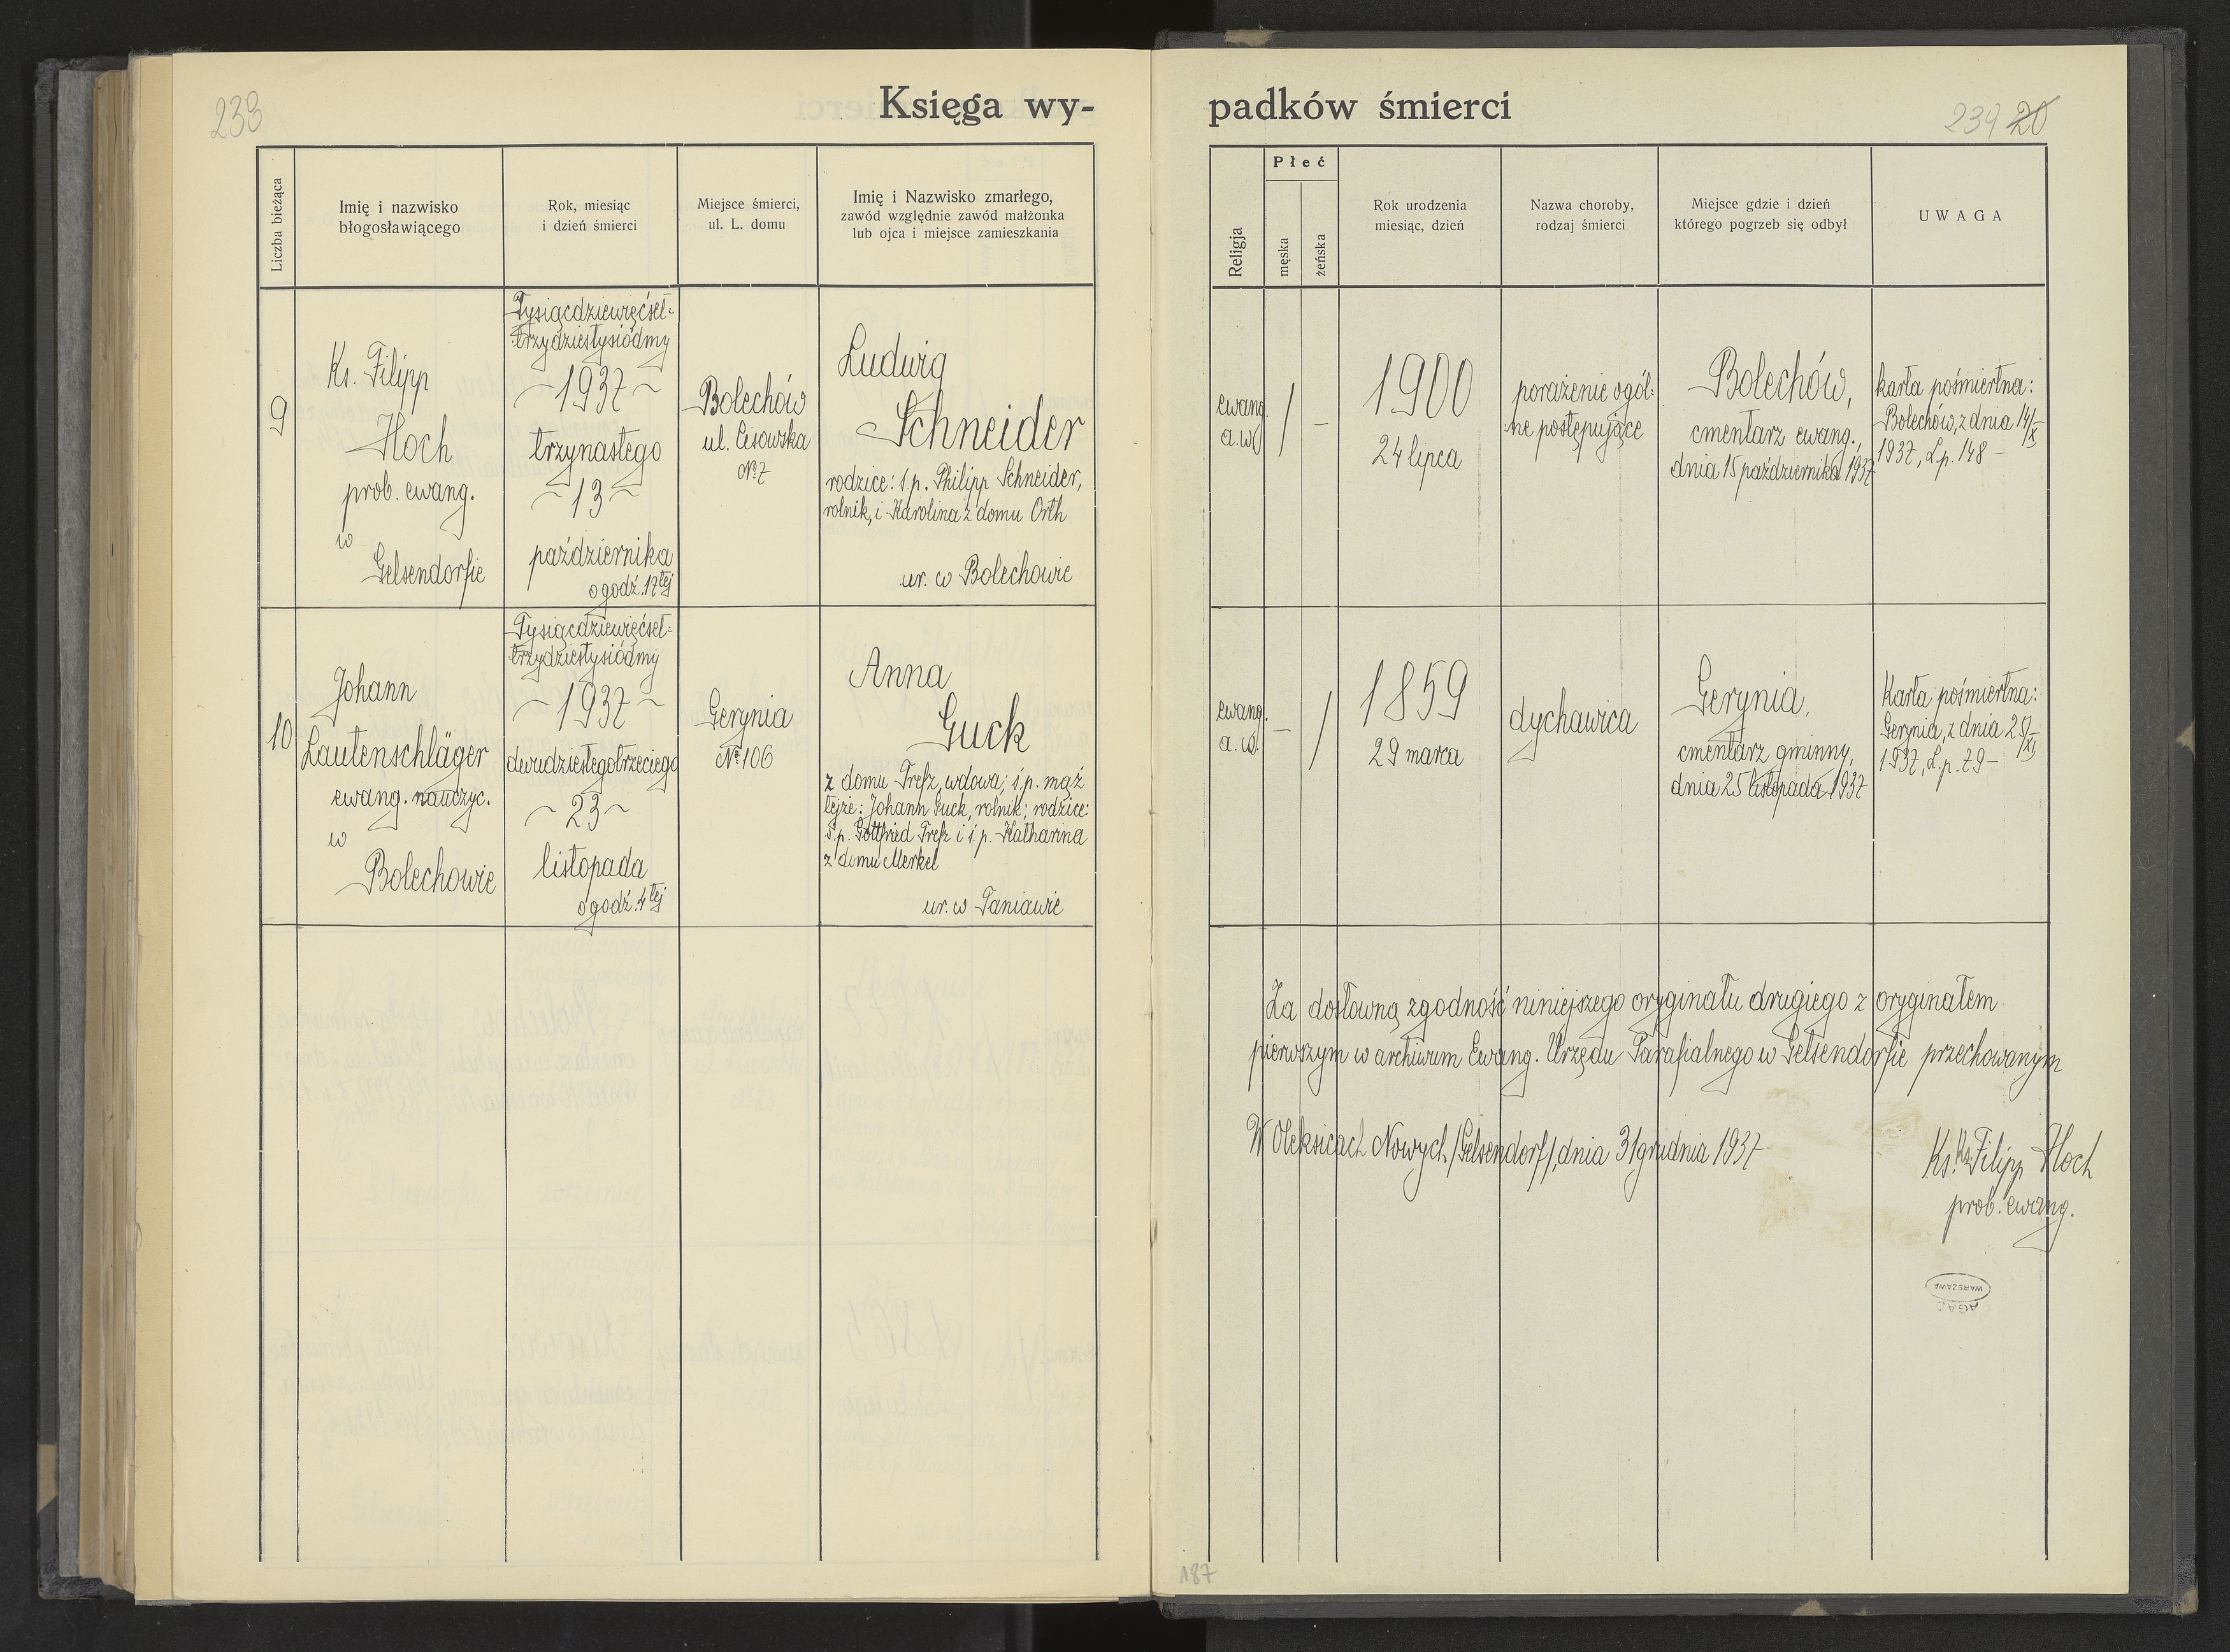 233
Księga wy-
Liczba bieżąca
Imię i nazwisko
błogosławiącego
Rok, miesiąc
i dzień śmierci
Miejsce śmierci,
ul. L. domu
Imię i Nazwisko zmarłego,
zawód względnie zawód małżonka
lub ojca i miejsce zamieszkania
9
Ks. Filipp
Hoch
prob. ewang.
w
Gelsendorfie
Tysiącdziewięćset-
trzydziestysiódmy
~1937~
trzynastego
~13~
października
o godź. 17tej
Bolechów
ul. Cisowska
№ 7
Ludwig
Schneider
rodzice: ś.p. Philipp Schneider,
rolnik, i Karolina z domu Orth
ur. w Bolechowie
10
Johann
Lautenschläger
ewang. nauczyc.
w
Bolechowie
Tysiącdziewięćset-
trzydziestysiódmy
~1937~
dwudziestegotrzeciego
~23~
listopada
o godź. 4tej
Gerynia
№ 106
Anna
Guck
z domu Trefz, wdowa; ś.p. mąż
tejże: Johann Guck, rolnik; rodzice:
ś.p. Gottfried Trefz i ś.p. Katharina
z domu Merkel
ur. w Paniawie
padków śmierci
234 20
Religja
Płeć
męska
żeńska
Rok urodzenia
miesiąc, dzień
Nazwa choroby,
rodzaj śmierci
Miejsce gdzie i dzień
którego pogrzeb się odbył
UWAGA
ewang.
a.w.
/
-
1900
24 lipca
porażenie ogól-
ne postępujące
Bolechów,
cmentarz ewang.,
dnia 15 października 1937
karta pośmiertna:
Bolechów, z dnia 14/X
1937, L.p. 148 -
ewang.
a.w.
-
/
1859
29 marca
dychawica
Gerynia,
cmentarz gminny,
dnia 25 listopada 1937
Karta pośmiertna:
Gerynia, z dnia 25/XI
1937, L.p. 79 -
Za dosłowną zgodność niniejszego oryginału drugiego z oryginałem
pierwszym w archiwum Ewang. Urzędu Parafialnego w Gelsendorfie przechowanym
W Oleksicach Nowych /Gelsendorf/, dnia 31 grudnia 1937
Ks. Filipp Hoch
prob. ewang.
WARSZAWA
AGAD
187